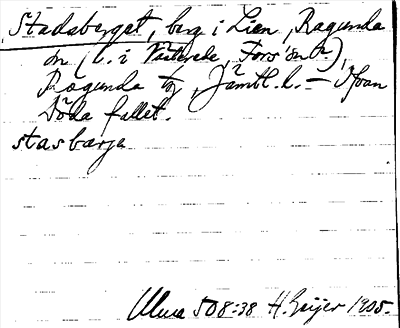 Stadsberget, berg i Lien, Ragunda
sn (l. i Västerede, Fors' sn?),
Ragunda tg, Jämtl. l. – Ovan
Döda fallet.
stasbærja
Ulma 508:38 H. Geijer 1905.